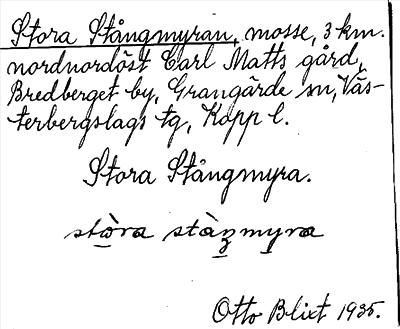 Stora Stångmyran, mosse, 3 km.
nordnordöst Carl Matts gård,
Bredberget by, Grangärde sn, Väs-
terbergslags tg, Kopp l.
Stora Stångmyra.
stòra stàŋmyra
Otto Blixt 1935.